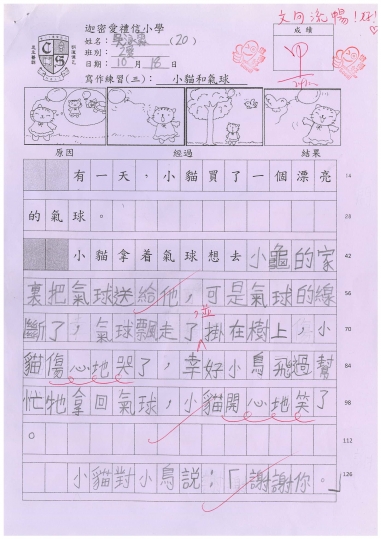 文句流暢！好！
迦密愛禮信小學
姓名：(20)
班別：
成績
甲
日期：10月18日
寫作練習(三)：小貓和氣球
原因 經過 結果
有一天，小貓買了一個漂亮 14
的氣球。 28
小貓拿着氣球想去小龜的家 42
裏把氣球送給他，可是氣球的線 56
斷了，氣球飄走了，並掛在樹上，小 70
貓傷心地哭了，幸好小鳥飛過幫 84
忙牠拿回氣球，小貓開心地笑了 98
。 112
小貓對小鳥說：「謝謝你。」 126